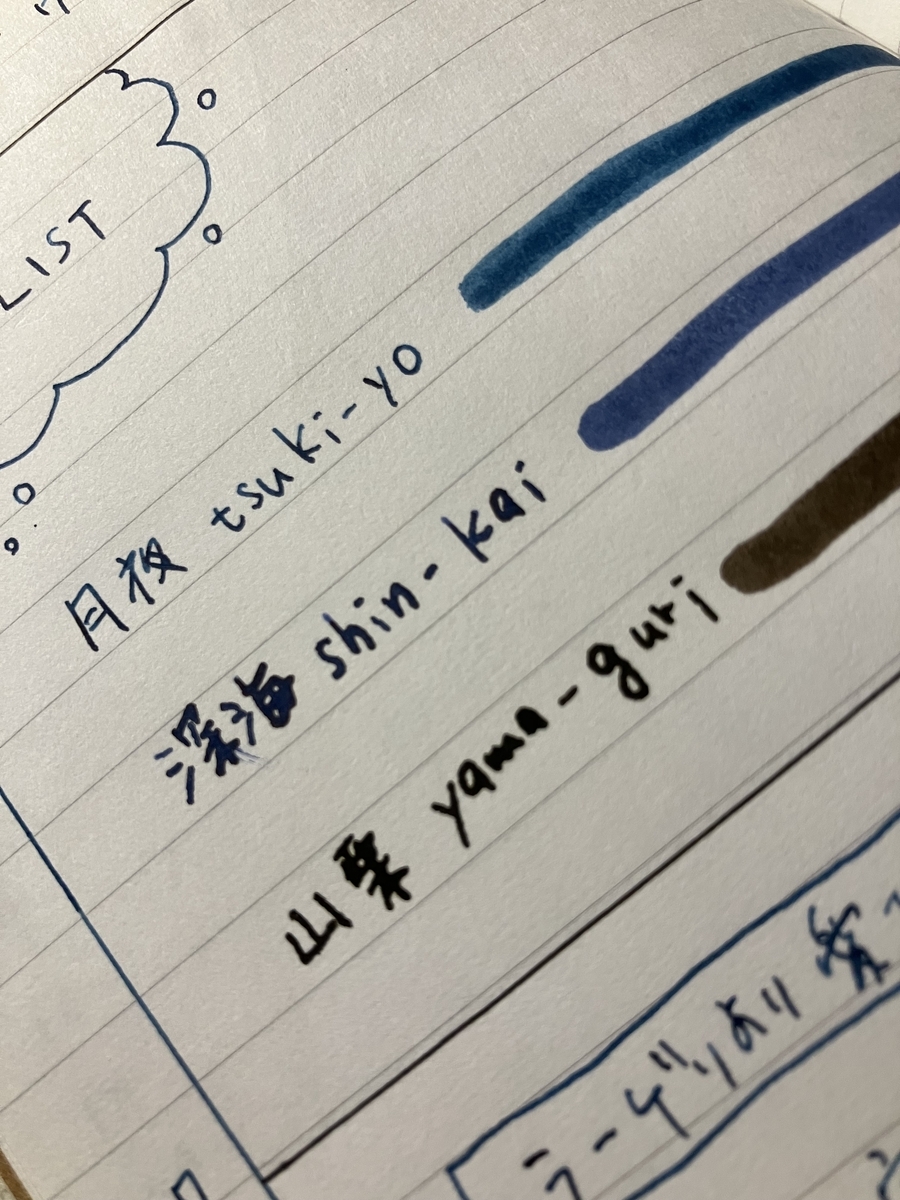 LIST
月夜 tsuki-yo
深海 shin-kai
山栗 yama-guri
ラーゲリより愛